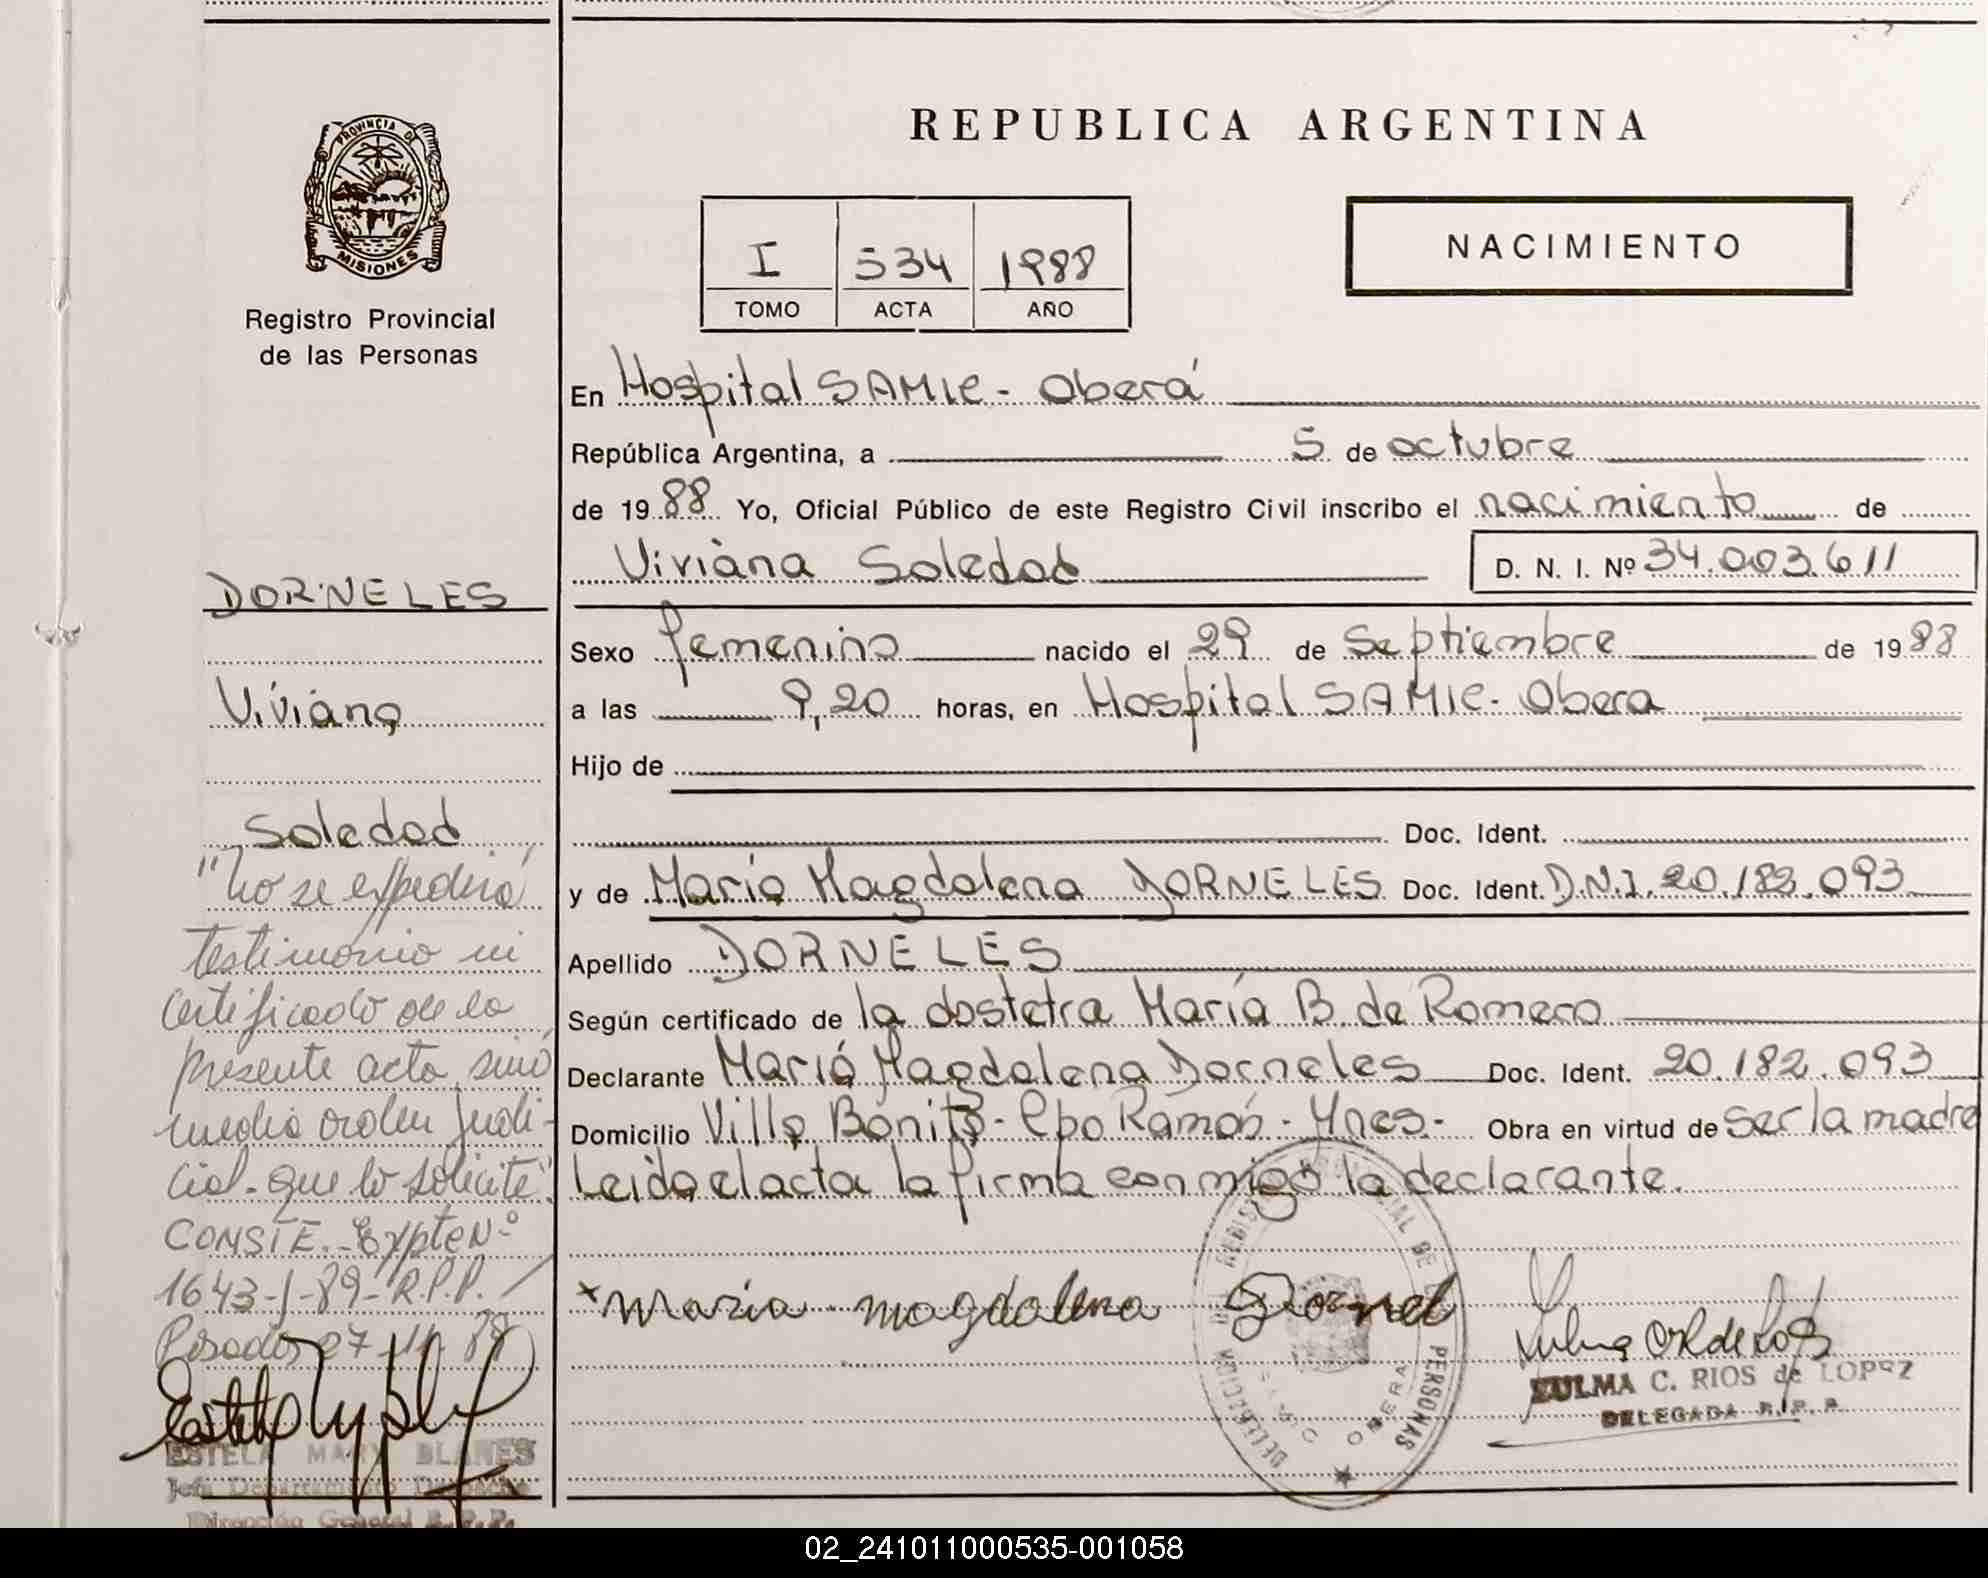 PROVINCIA DE
MISIONES
Registro Provincial
de las Personas
DORNELES
Viviana
Soledad
"No se expedirá
testimonio ni
certificado de la
presente acta, sinó
media orden judi-
cial que lo solicite".
CONSTE.- Expte Nº
1643-J-89-R.P.P.
Posadas, 27-11-
ESTELA MARY BLANES
Jefa Departamento Despacho
Dirección General R.P.P.
REPUBLICA ARGENTINA
I 534 1988
TOMO ACTA AÑO
NACIMIENTO
En Hospital SAMIC - Oberá
República Argentina, a 5 de octubre
de 1988 Yo, Oficial Público de este Registro Civil inscribo el nacimiento de
Viviana Soledad D. N. I. Nº 34.003.611
Sexo femenino nacido el 29 de Septiembre de 1988
a las 9,20 horas, en Hospital SAMIC - Obera
Hijo de
Doc. Ident.
y de María Magdalena DORNELES Doc. Ident. D.N.I. 20.182.093
Apellido DORNELES
Según certificado de la obstetra María B. de Romero
Declarante María Magdalena Dorneles Doc. Ident. 20.182.093
Domicilio Villa Bonita - Cpo Ramón - Mnes.- Obra en virtud de ser la madre
Leida el acta la firma conmigo la declarante.
x maria magdalena Dornel
DELEGACION DEL REGISTRO PROVINCIAL DE LAS PERSONAS
OBERA
ZULMA C. RIOS de LOPEZ
DELEGADA R. P. P.
02_241011000535-001058